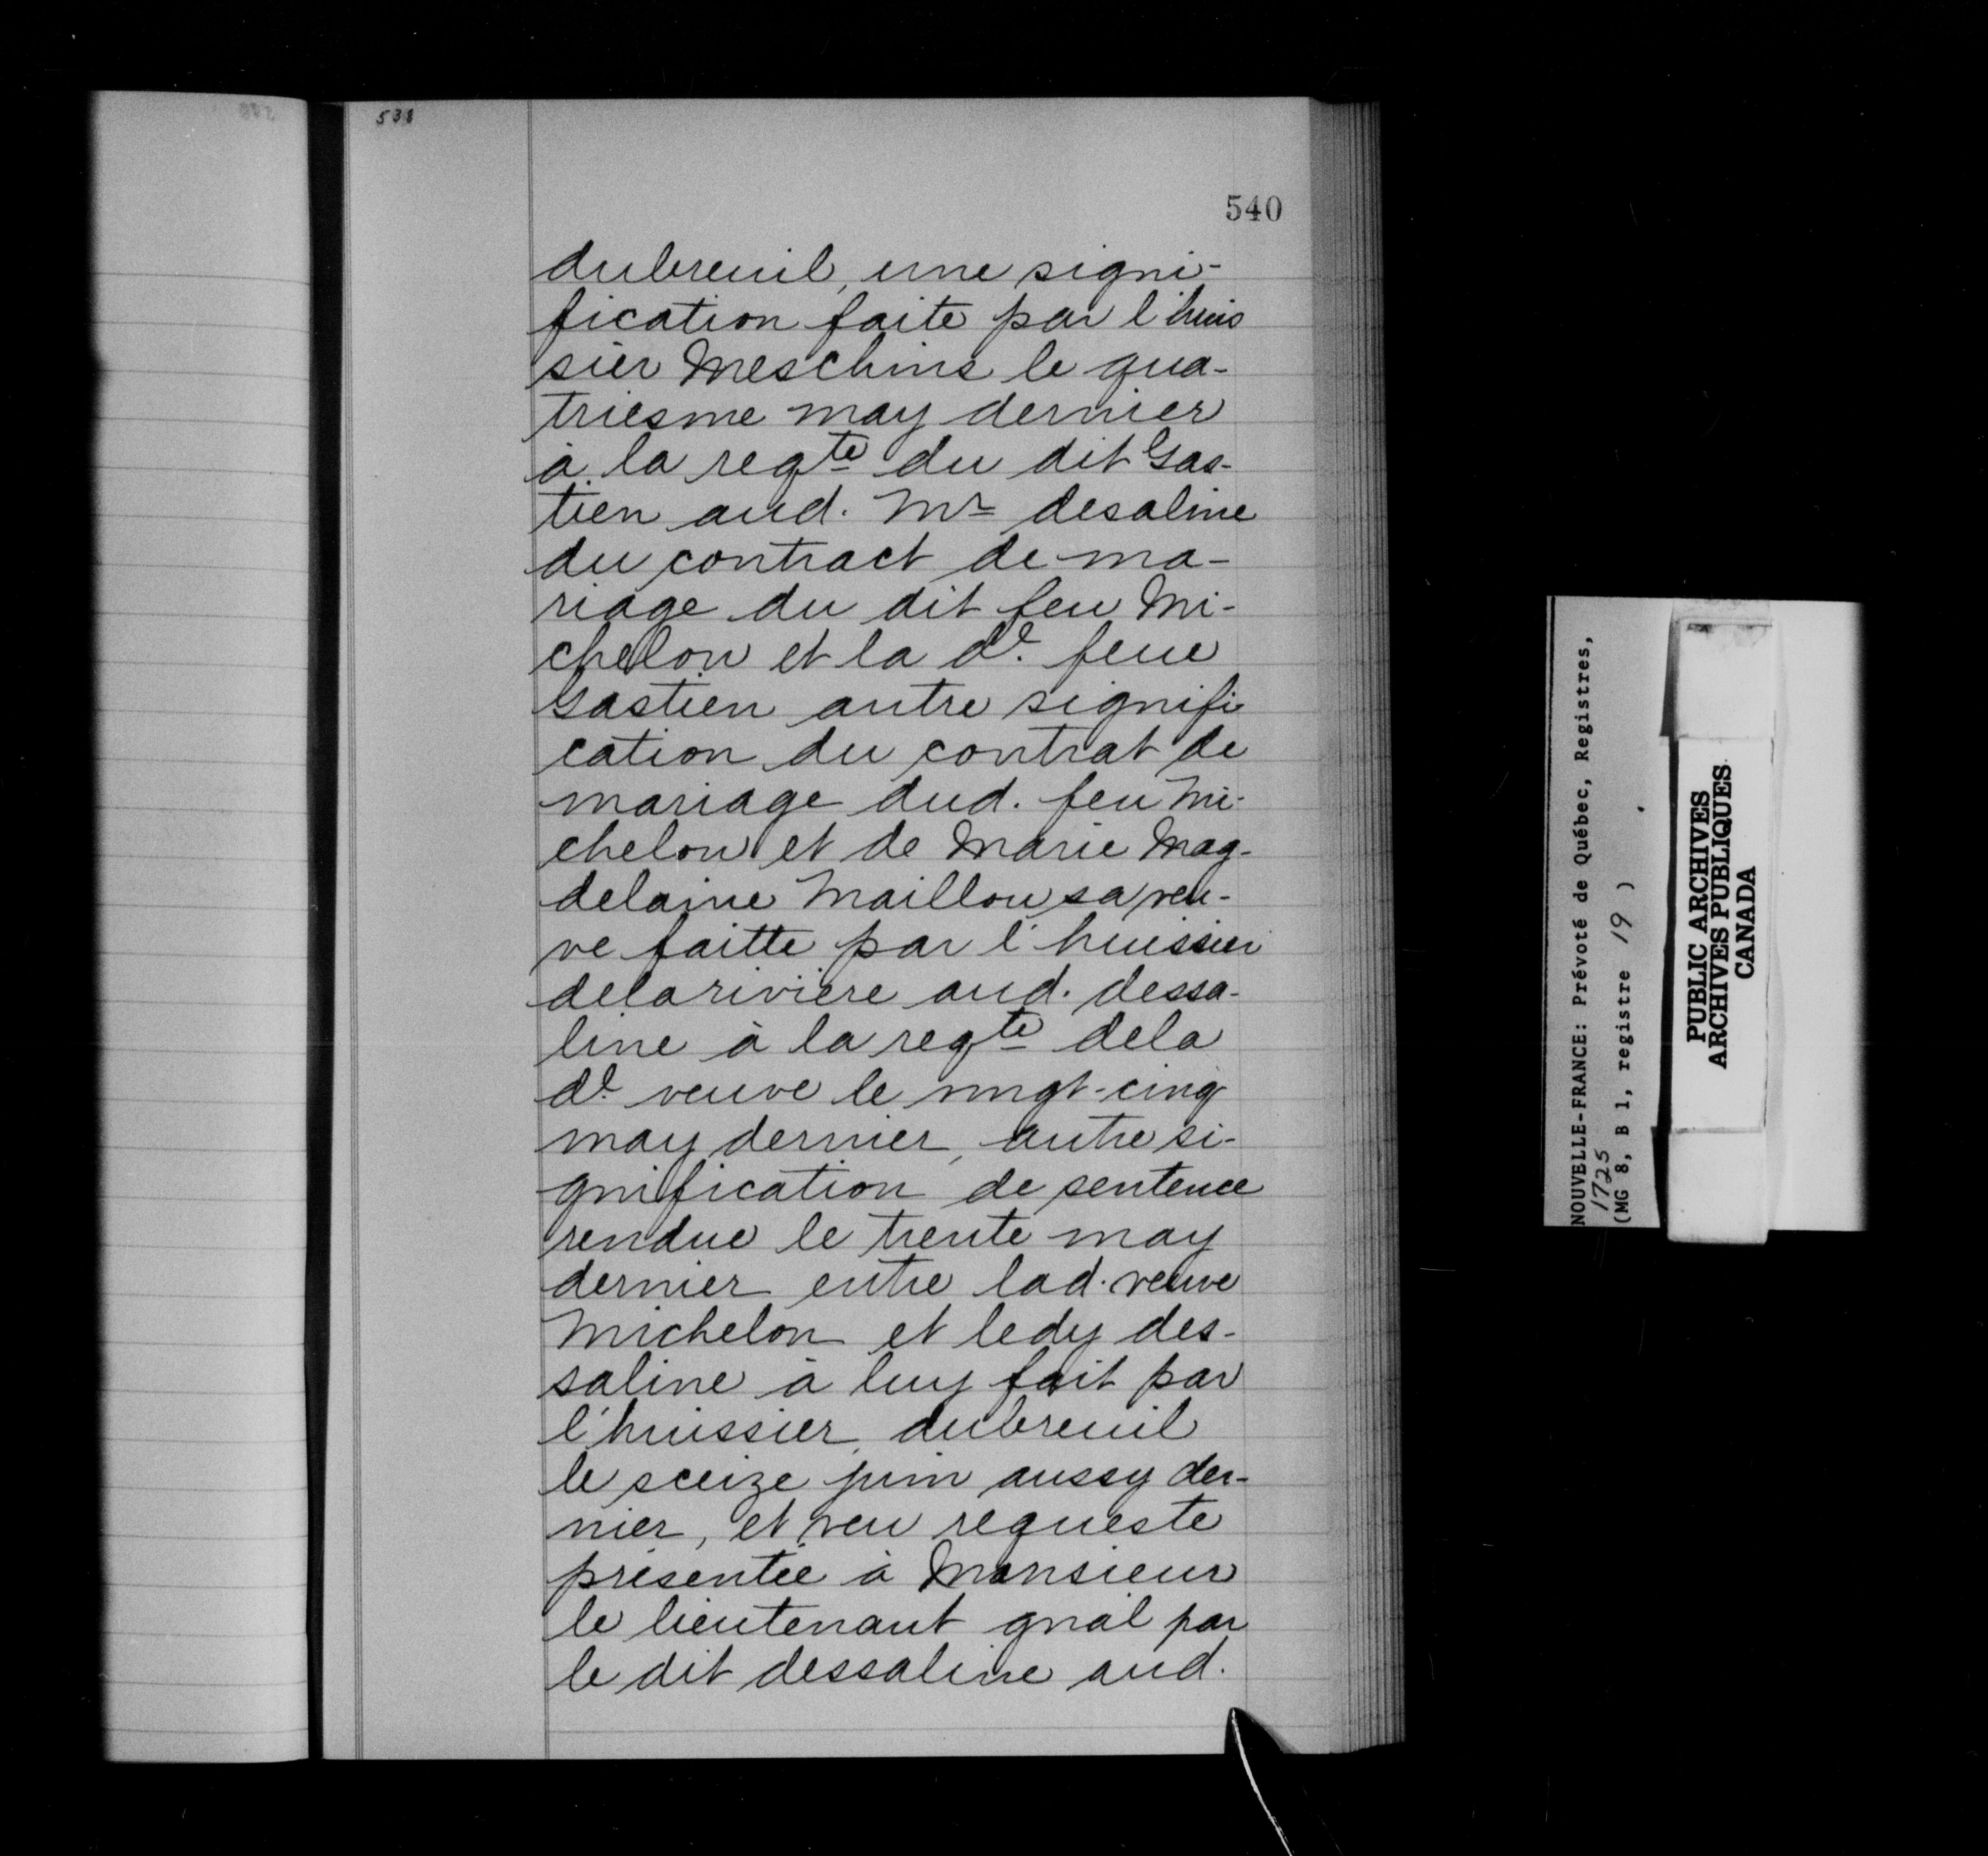 538
540
dubreuil, une signi-
fication faite par l'huis
sier Meschins le qua-
triesme may dernier
à la reqte du dit Gas-
tien aud. Mr desaline
du contract de ma-
riage du dit feu Mi-
chelon et la de. feue
Gastien autre signifi
cation du contrat de
mariage dud. feu Mi-
chelon et de Marie Mag-
delaine Maillou sa veu-
ve faitte par l'huissier
delarivière aud. dessa-
line à la reqte dela
de. veuve le vingt-cinq
may dernier, autre si-
gnification de sentence
rendue le trente may
dernier entre lad. veuve
Michelon et ledy des-
saline à luy fait par
l'huissier dubreuil
le sceize juin aussy der-
nier, et veu requeste
présentée à Monsieur
le lieutenant gnal par
le dit dessaline aud.
NOUVELLE-FRANCE: Prévoté de Québec, Registres,
1725
(MG 8, B 1, registre 19 ) .
PUBLIC ARCHIVES
ARCHIVES PUBLIQUES
CANADA